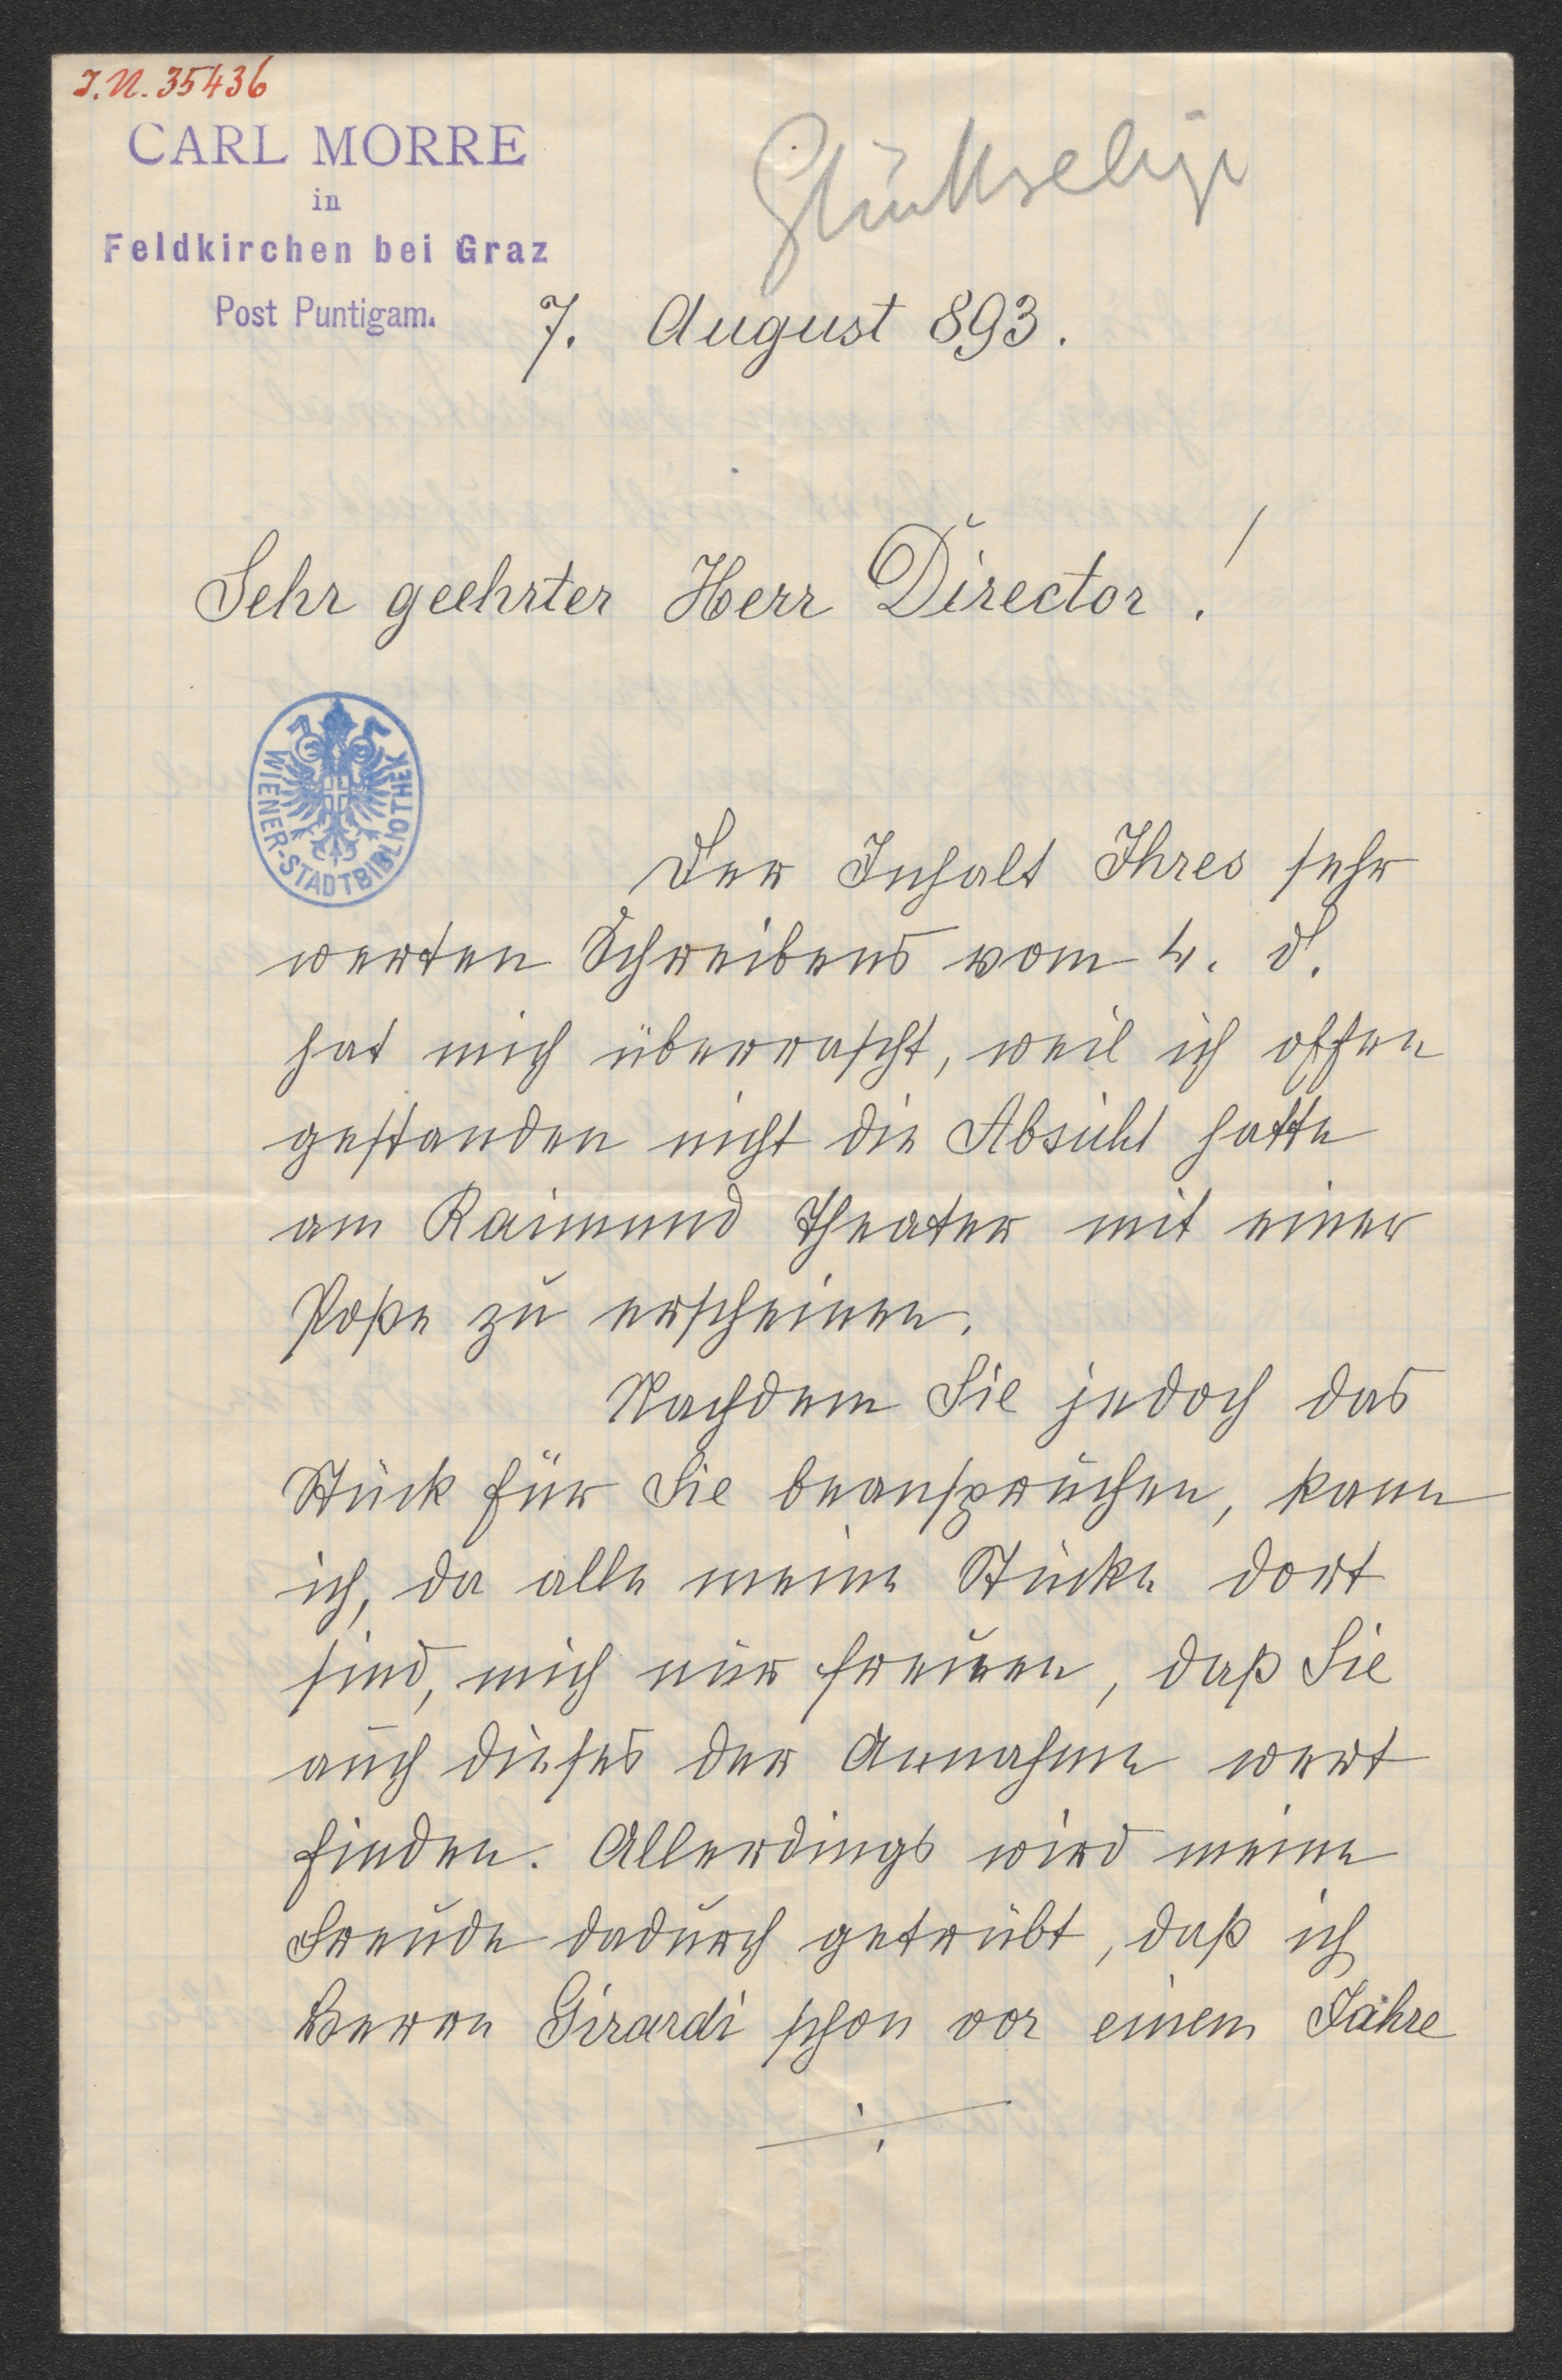 I.N. 35436
CARL MORRE
in
Feldkirchen bei Graz
Post Puntigam.
Glückselige
7. August 893.
Sehr geehrter Herr Director!
WIENER-STADTBIBLIOTHEK
Der Inhalt Ihres sehr
werten Schreibens vom 4. d.
hat mich überrascht, weil ich offen
gestanden nicht die Absicht hatte
am Raimund Theater mit einer
Poße zu erscheinen.
Nachdem Sie jedoch das
Stück für Sie beanspruchen, kann
ich, da alle meine Stücke dort
sind, mich nur freuen, daß Sie
auch dieses der Annahme wert
finden. Allerdings wird meine
Freude dadurch getrübt, daß ich
Herrn Girardi schon vor einem Jahre
./.